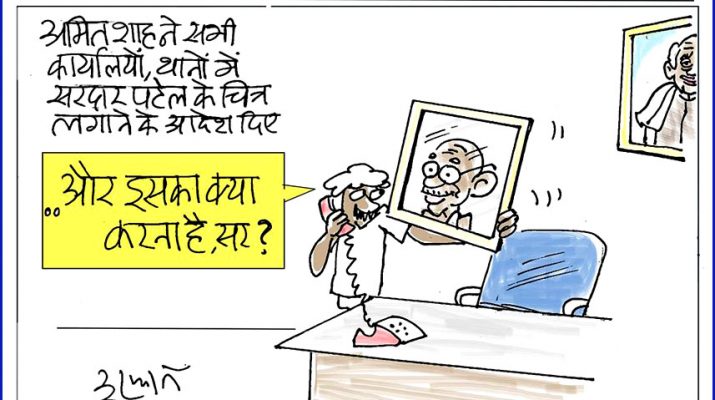 अमित शाह ने सभी
कार्यालयों, थानों में
सरदार पटेल के चित्र
लगाने के आदेश दिए
..और इसका क्या
करना है, सर?